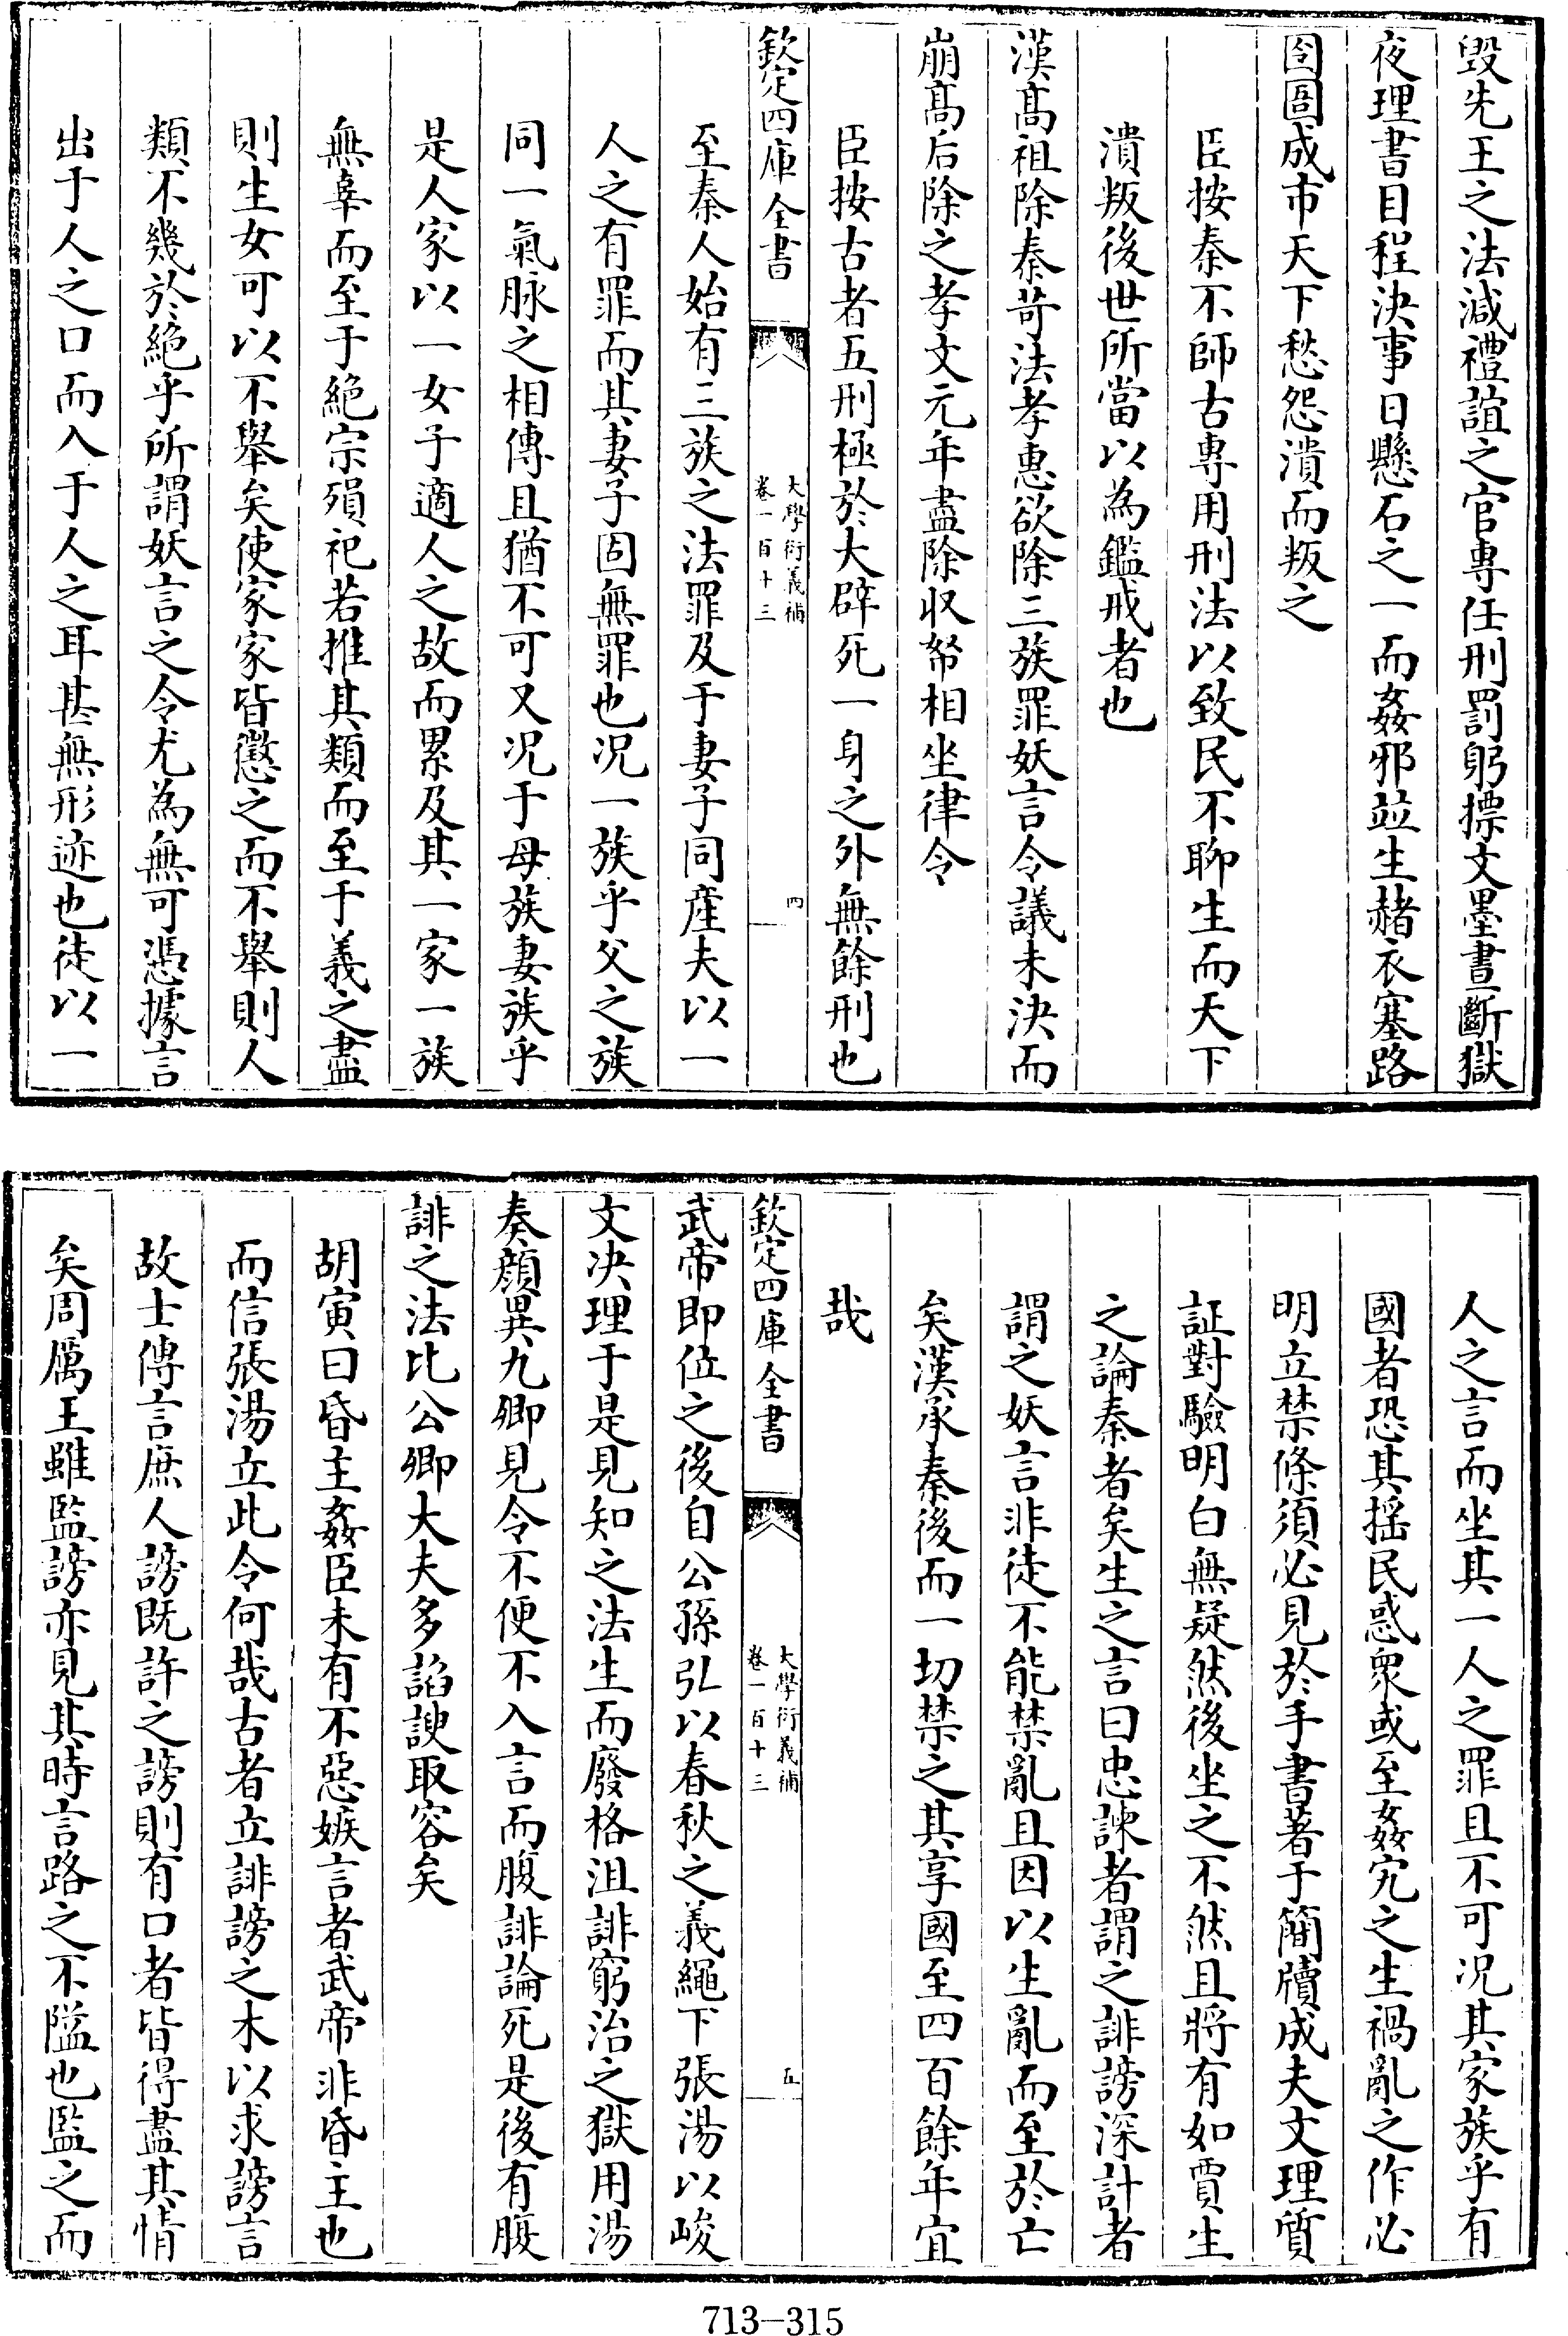 毀先王之法滅禮誼之官專任刑罰躬摽文墨晝斷獄
夜理書目程決事日懸石之一而姦邪竝生赭衣塞路
囹圄成市天下愁怨潰而叛之
臣按秦不師古專用刑法以致民不聊生而天下
潰叛後世所當以為鑑戒者也
漢髙祖除秦苛法孝惠欲除三族罪妖言令議未決而
崩髙后除之孝文元年盡除収帑相坐律令
臣按古者五刑極於大辟死一身之外無餘刑也
欽定四庫全書
大學衍義補
卷一百十三
四
至秦人始有三族之法罪及于妻子同産夫以一
人之有罪而其妻子固無罪也况一族乎父之族
同一氣脉之相傳且猶不可又况于母族妻族乎
是人家以一女子適人之故而累及其一家一族
無辜而至于絶宗殞祀若推其類而至于義之盡
則生女可以不舉矣使家家皆懲之而不舉則人
類不幾於絶乎所謂妖言之令尤為無可憑據言
出于人之口而入于人之耳甚無形迹也徒以一
人之言而坐其一人之罪且不可况其家族乎有
國者恐其揺民惑衆或至姦宄之生禍亂之作必
明立禁條須必見於手書著于簡牘成夫文理質
証對驗明白無疑然後坐之不然且將有如賈生
之論秦者矣生之言曰忠諫者謂之誹謗深計者
謂之妖言非徒不能禁亂且因以生亂而至於亡
矣漢承秦後而一切禁之其享國至四百餘年宜
哉
欽定四庫全書
大學衍義補
卷一百十三
五
武帝即位之後自公孫弘以春秋之義繩下張湯以峻
文决理于是見知之法生而廢格沮誹窮治之獄用湯
奏顔異九卿見令不便不入言而腹誹論死是後有腹
誹之法比公卿大夫多諂諛取容矣
胡寅曰昏主姦臣未有不惡嫉言者武帝非昏主也
而信張湯立此令何哉古者立誹謗之木以求謗言
故士傳言庶人謗既許之謗則有口者皆得盡其情
矣周厲王雖監謗亦見其時言路之不隘也監之而
713-315